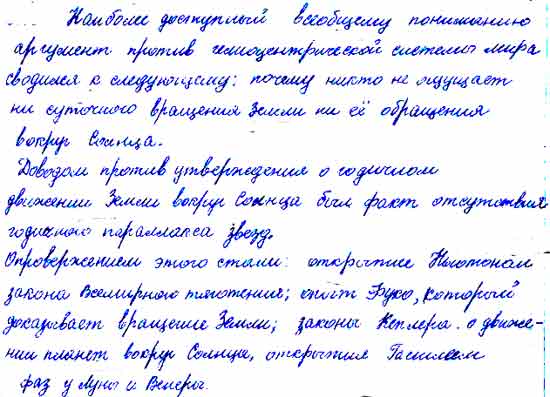 Наиболее доступный всеобщему пониманию
аргумент против гелиоцентрической системы мира
сводился к следующему: почему никто не ощущает
ни суточного вращения Земли ни её обращения
вокруг Солнца.
Доводом против утверждения о годичном
движении Земли вокруг Солнца был факт отсутствия
годичного параллакса звезд.
Опровержением этого стали: открытие Ньютоном
закона Всемирного тяготения; опыт Фуко, который
доказывает вращение Земли; законы Кеплера о движе-
нии планет вокруг Солнца, открытия Галилеем
фаз у Луны и Венеры.